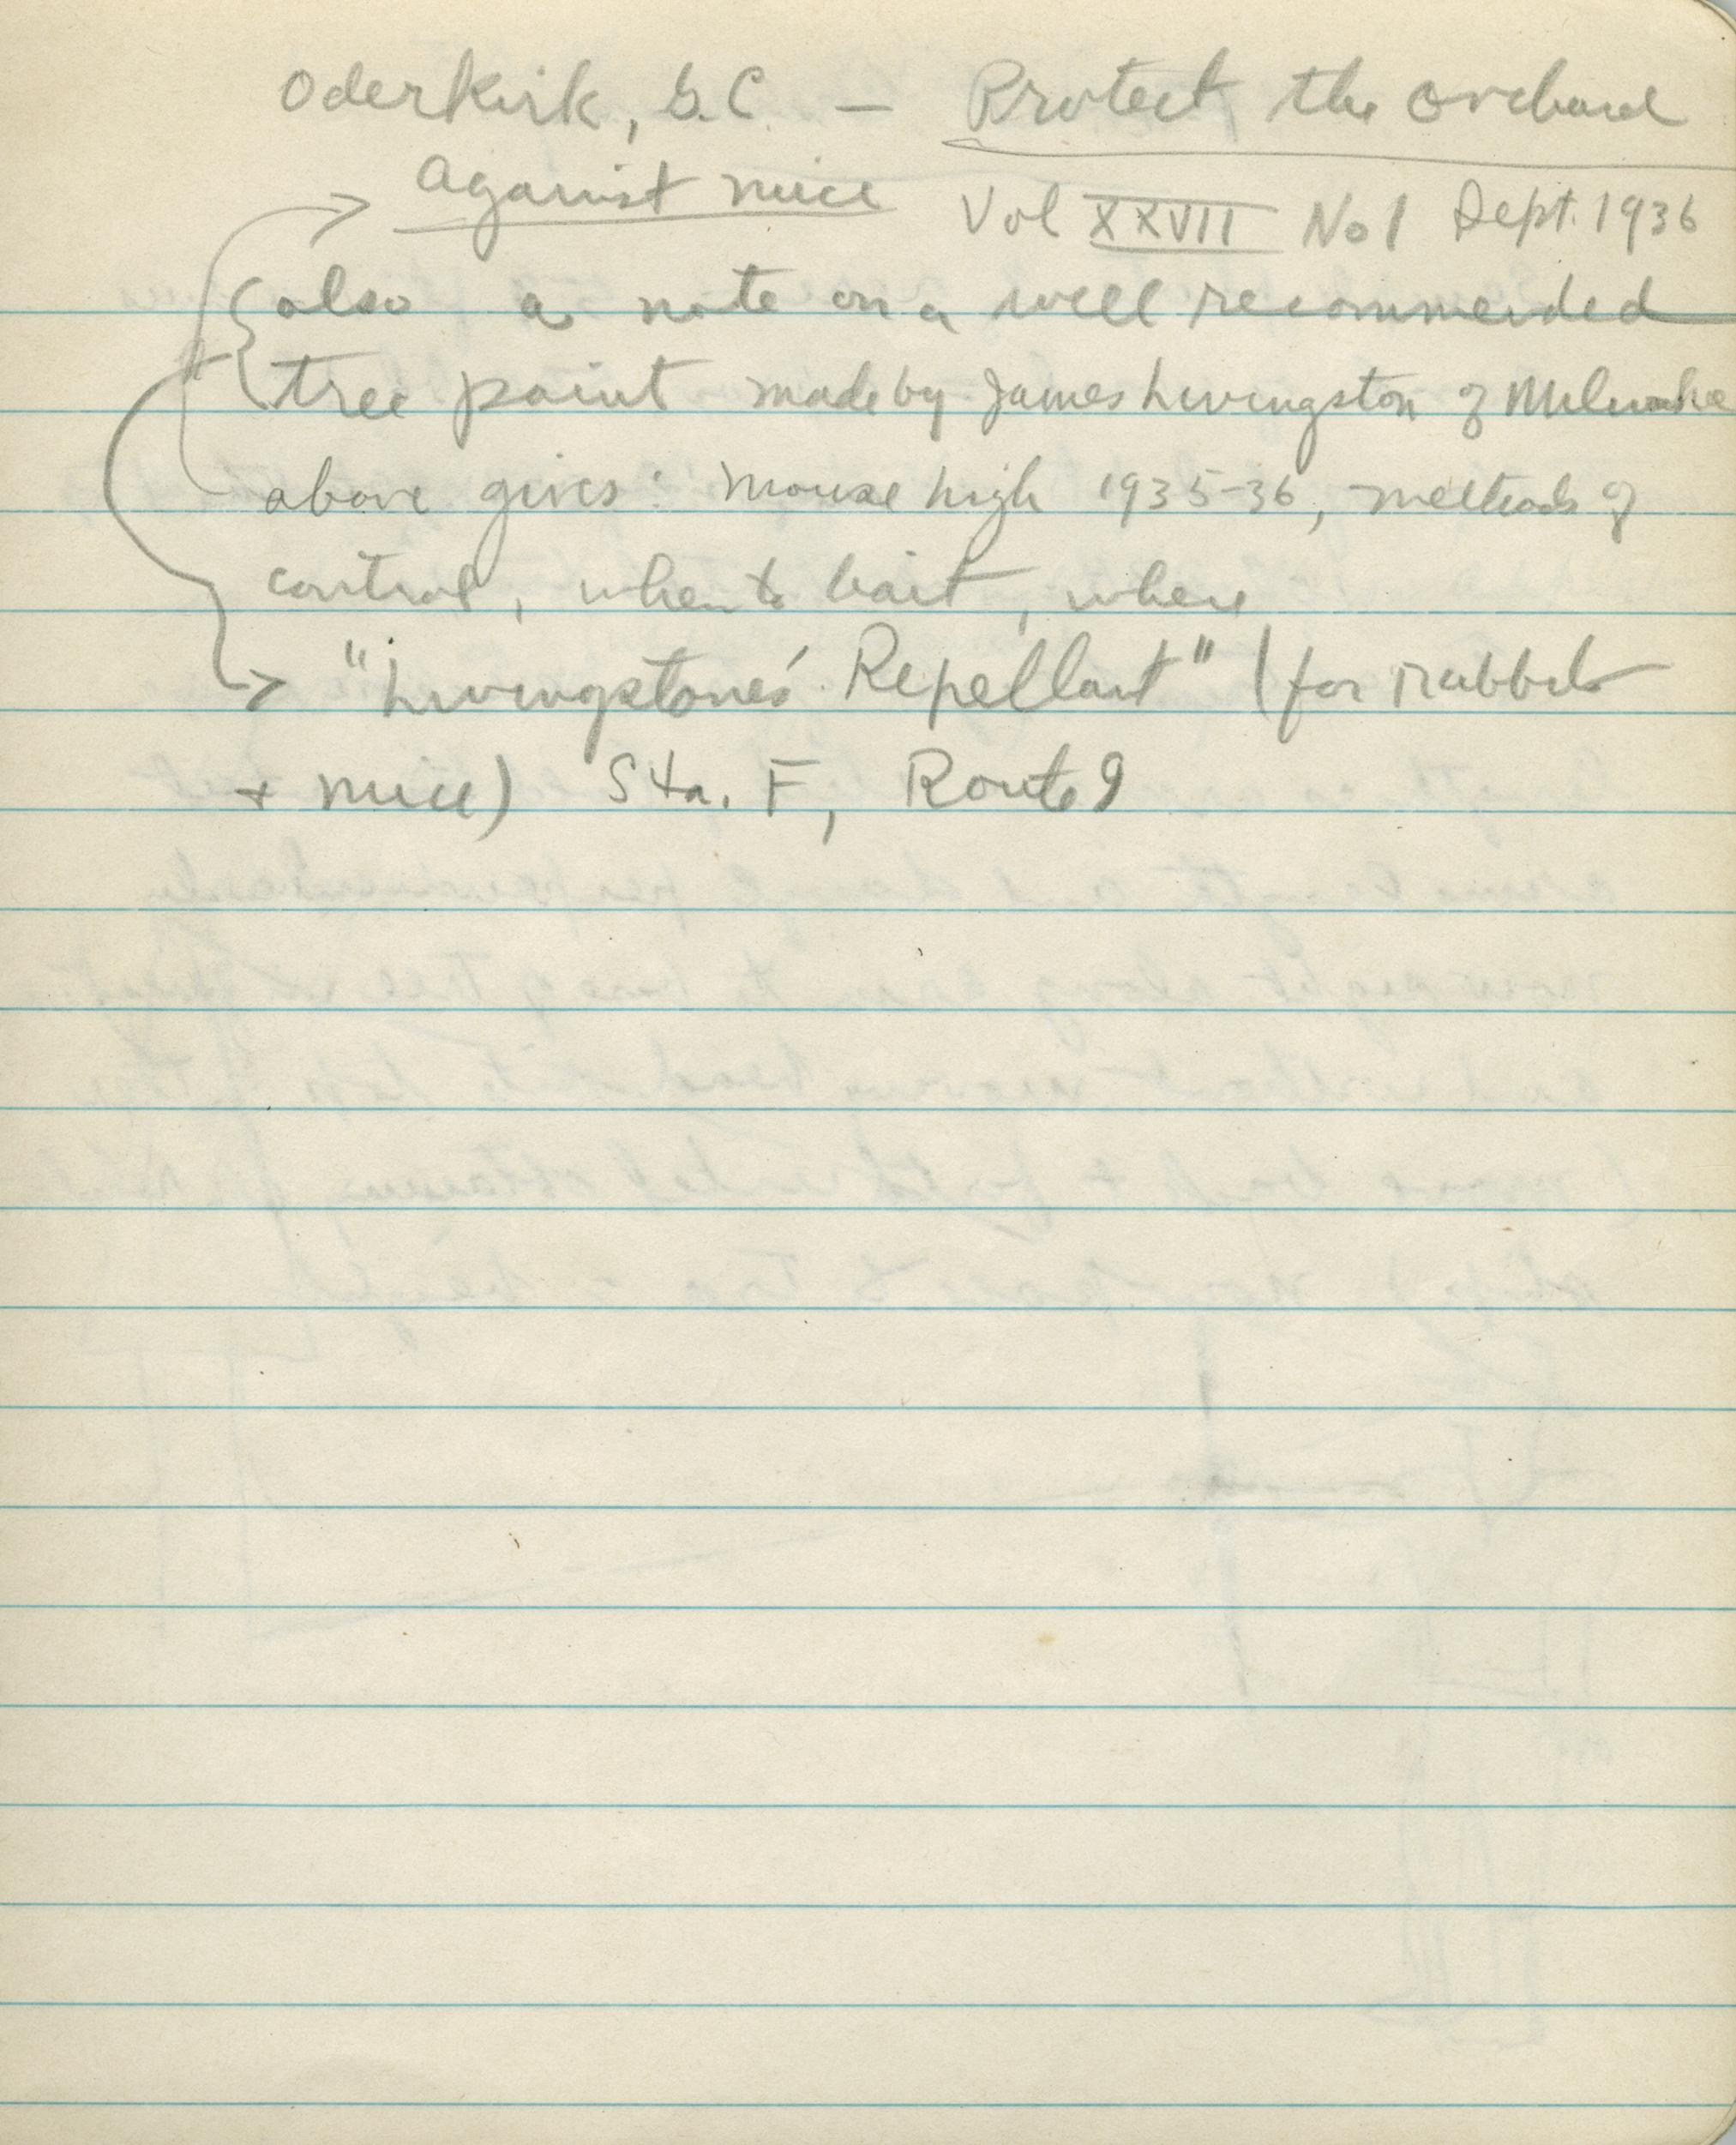 Oderkirk, G.C. — Protect the orchard
against mice Vol XXVII No 1 Sept. 1936
also a note on a well recommended
tree paint made by James Livingston of Milwaukee
above gives: mouse high 1935-36, methods of
control, when to bait, where
"Livingstone's Repellant" (for rabbits
+ mice) Sta. F, Route 9